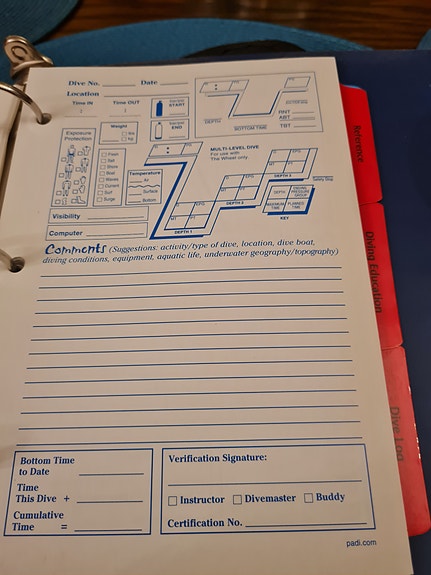 Dive No. Date
Location
Time IN Time OUT
: :
START
END
DEPTH
BOTTOM TIME
RNT
ABT
TBT
Exposure
Protection
Weight
lbs
kg
Fresh
Salt
Shore
Boat
Waves
Current
Surf
Surge
Temperature
Air
Surface
Bottom
MULTI-LEVEL DIVE
For use with
The Wheel only.
DEPTH 1
DEPTH 2
DEPTH 3
Safety Stop
DEPTH
ENDING
PRESSURE
GROUP
MAXIMUM
TIME
PLANNED
TIME
KEY
Visibility
Computer
Comments (Suggestions: activity/type of dive, location, dive boat,
diving conditions, equipment, aquatic life, underwater geography/topography)
Bottom Time
to Date
Time
This Dive +
Cumulative
Time =
Verification Signature:
Instructor Divemaster Buddy
Certification No.
padi.com
Reference
Diving Education
Dive Log